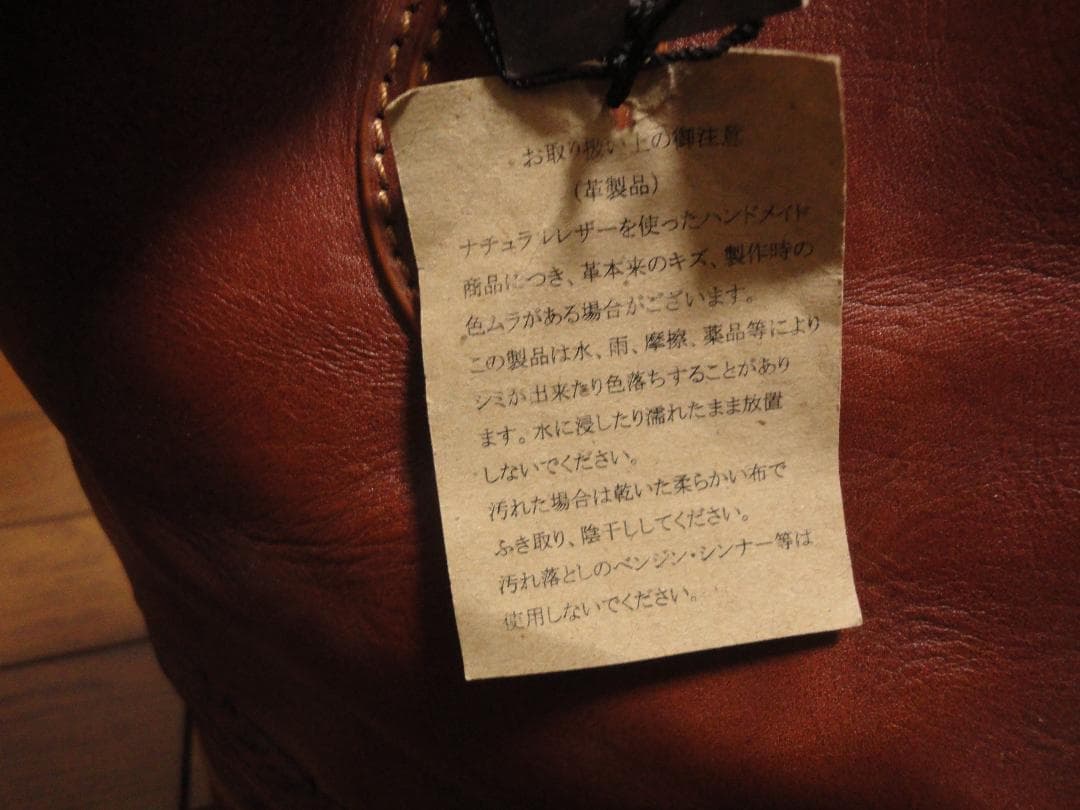 お取り扱い上の御注意
(革製品)
ナチュラルレザーを使ったハンドメイド
商品につき、革本来のキズ、製作時の
色ムラがある場合がございます。
この製品は水、雨、摩擦、薬品等により
シミが出来たり色落ちすることがあり
ます。水に浸したり濡れたまま放置
しないでください。
汚れた場合は乾いた柔らかい布で
ふき取り、陰干ししてください。
汚れ落としのベンジン・シンナー等は
使用しないでください。